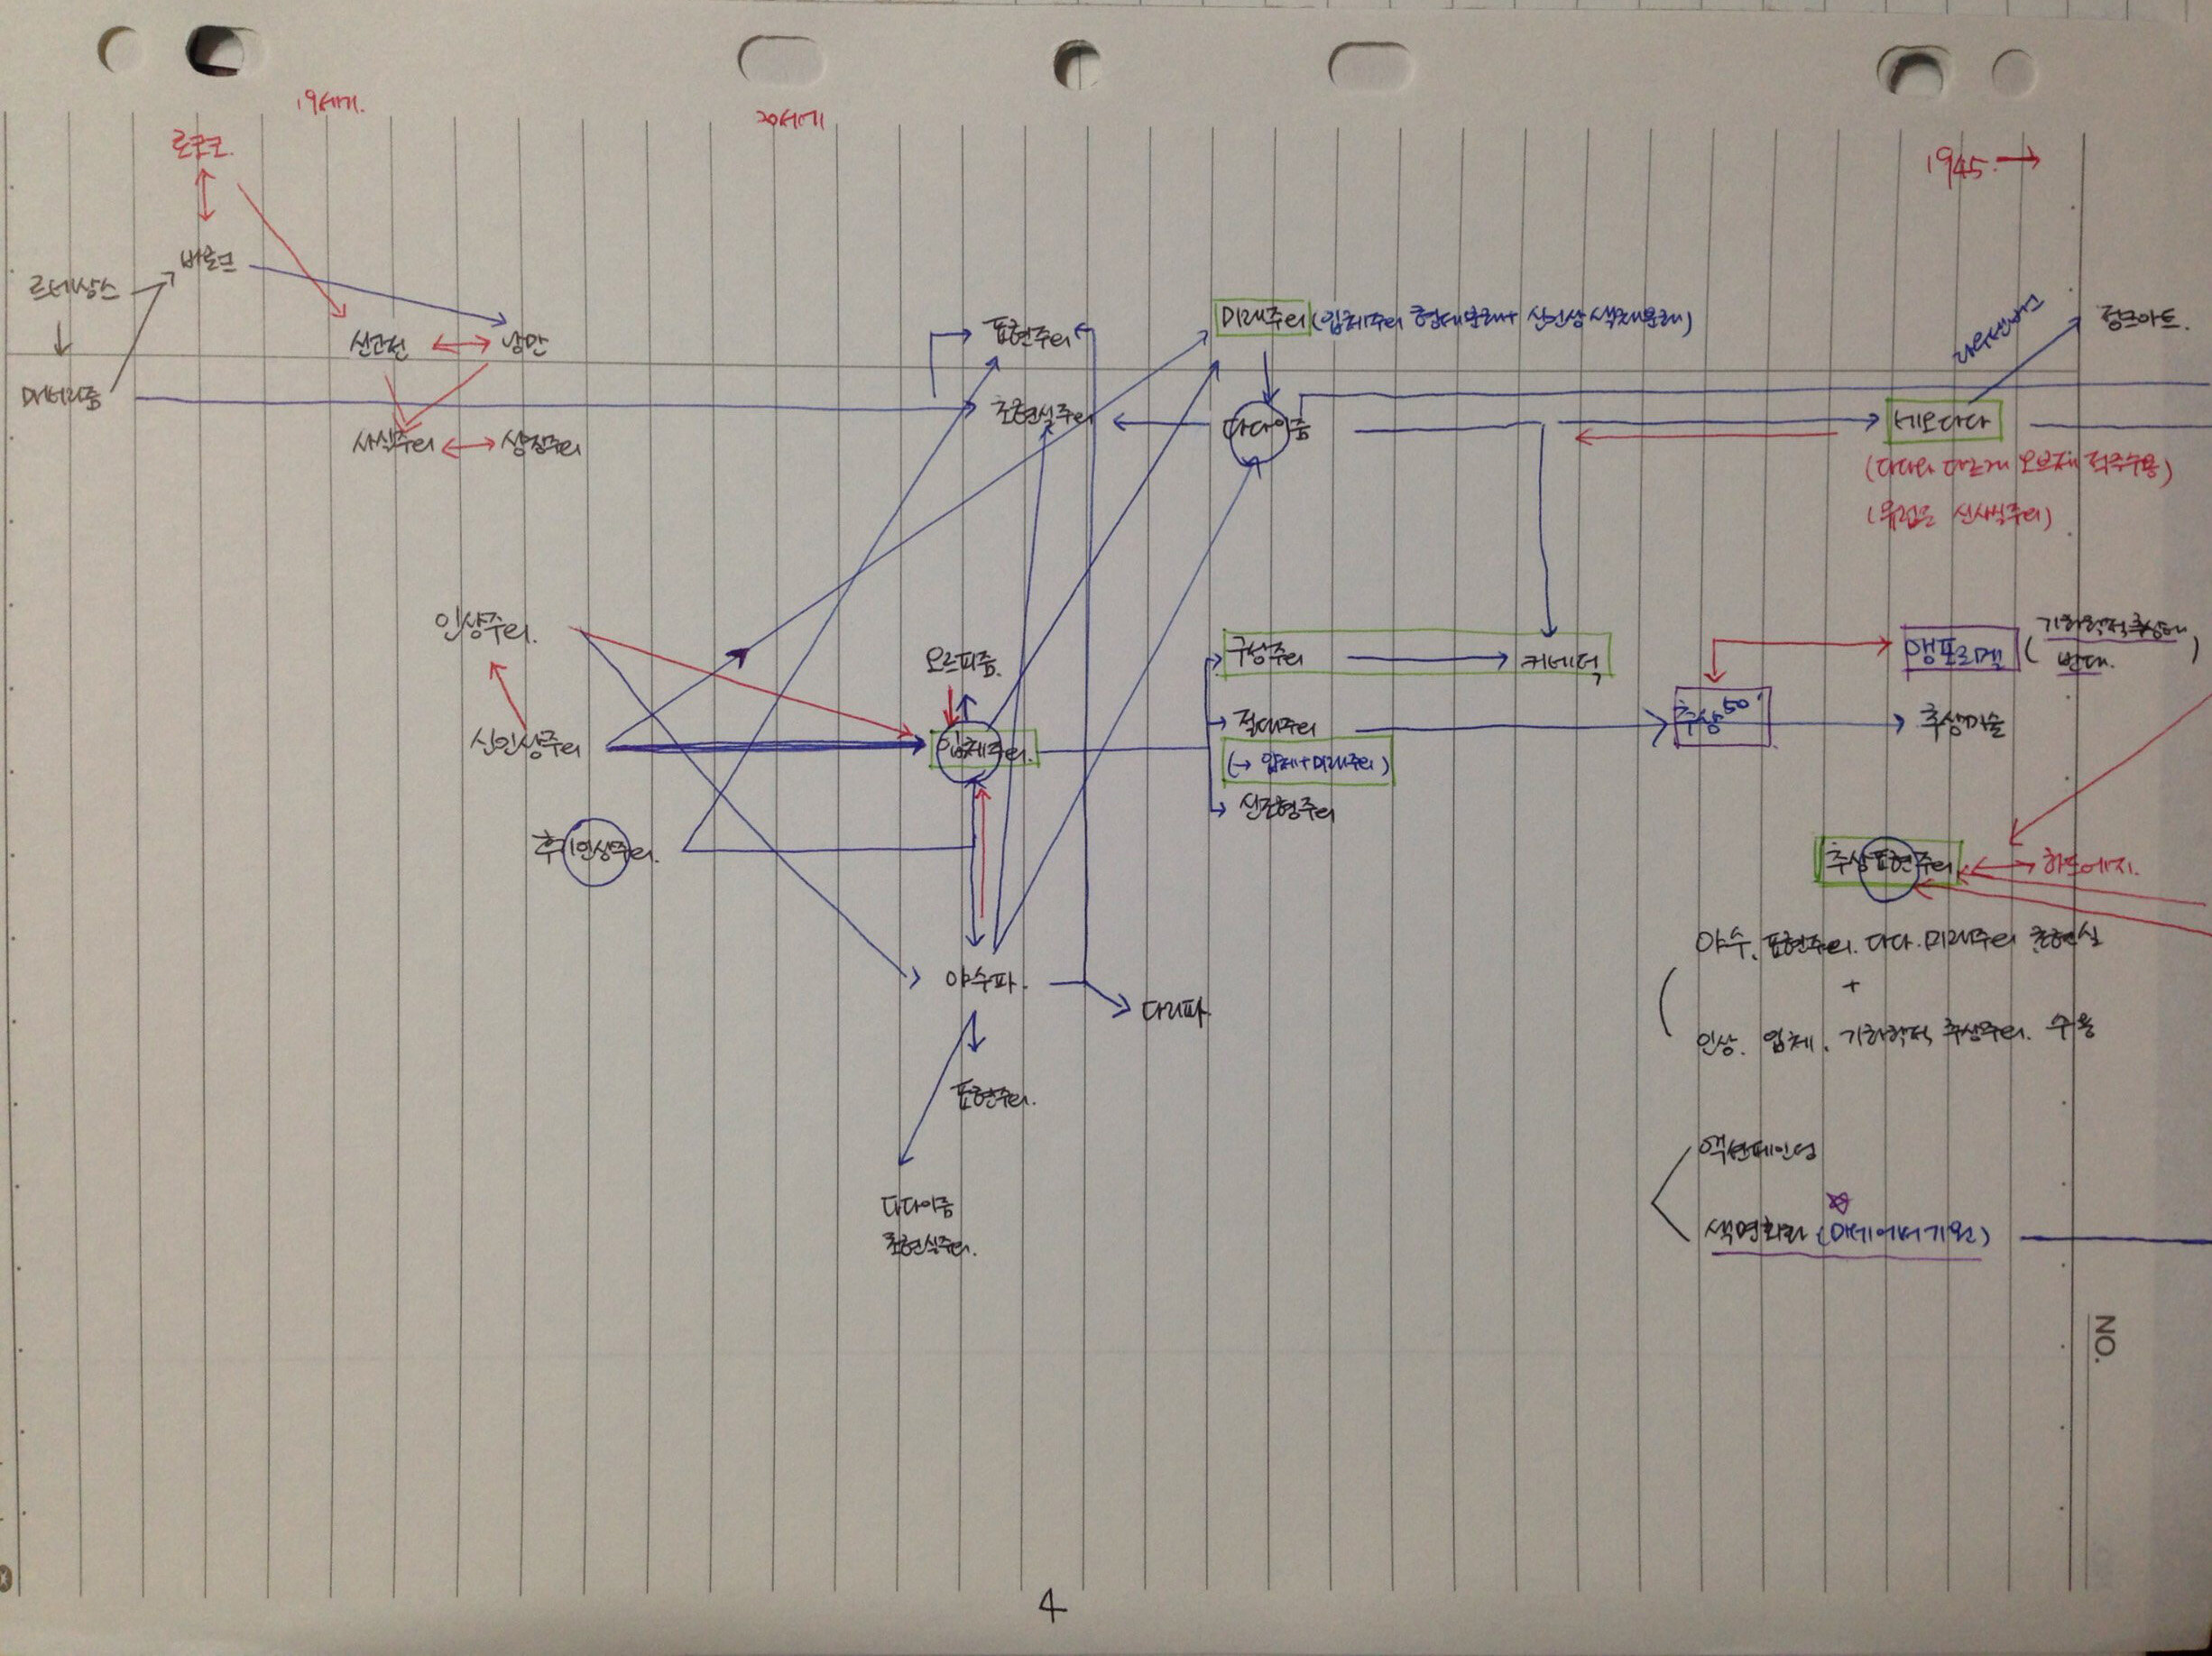 19세기.
20세기
1945. →
로코코.
바로크
르네상스
매너리즘
신고전
낭만
사실주의
상징주의
표현주의
초현실주의
미래주의 (입체주의 형태분해 + 신인상 색채분해)
다다이즘
라우센버그
정크아트.
네오다다
(다다와 다르게 오브제 적극수용)
(유럽은 신사실주의)
인상주의.
신인상주의
후기인상주의.
오르피즘.
입체주의.
구상주의
키네틱
절대주의
(→ 입체+미래주의)
신조형주의
추상 50'
앵포르멜
(기하학적추상에
반대.)
추상미술
추상표현주의
하드에지.
야수파.
다리파.
표현주의.
다다이즘
초현실주의.
야수. 표현주의. 다다. 미래주의 초현실
+
인상. 입체. 기하학적 추상주의. 수용
액션페인팅
색면회화 (마네에서 기원)
NO.
4